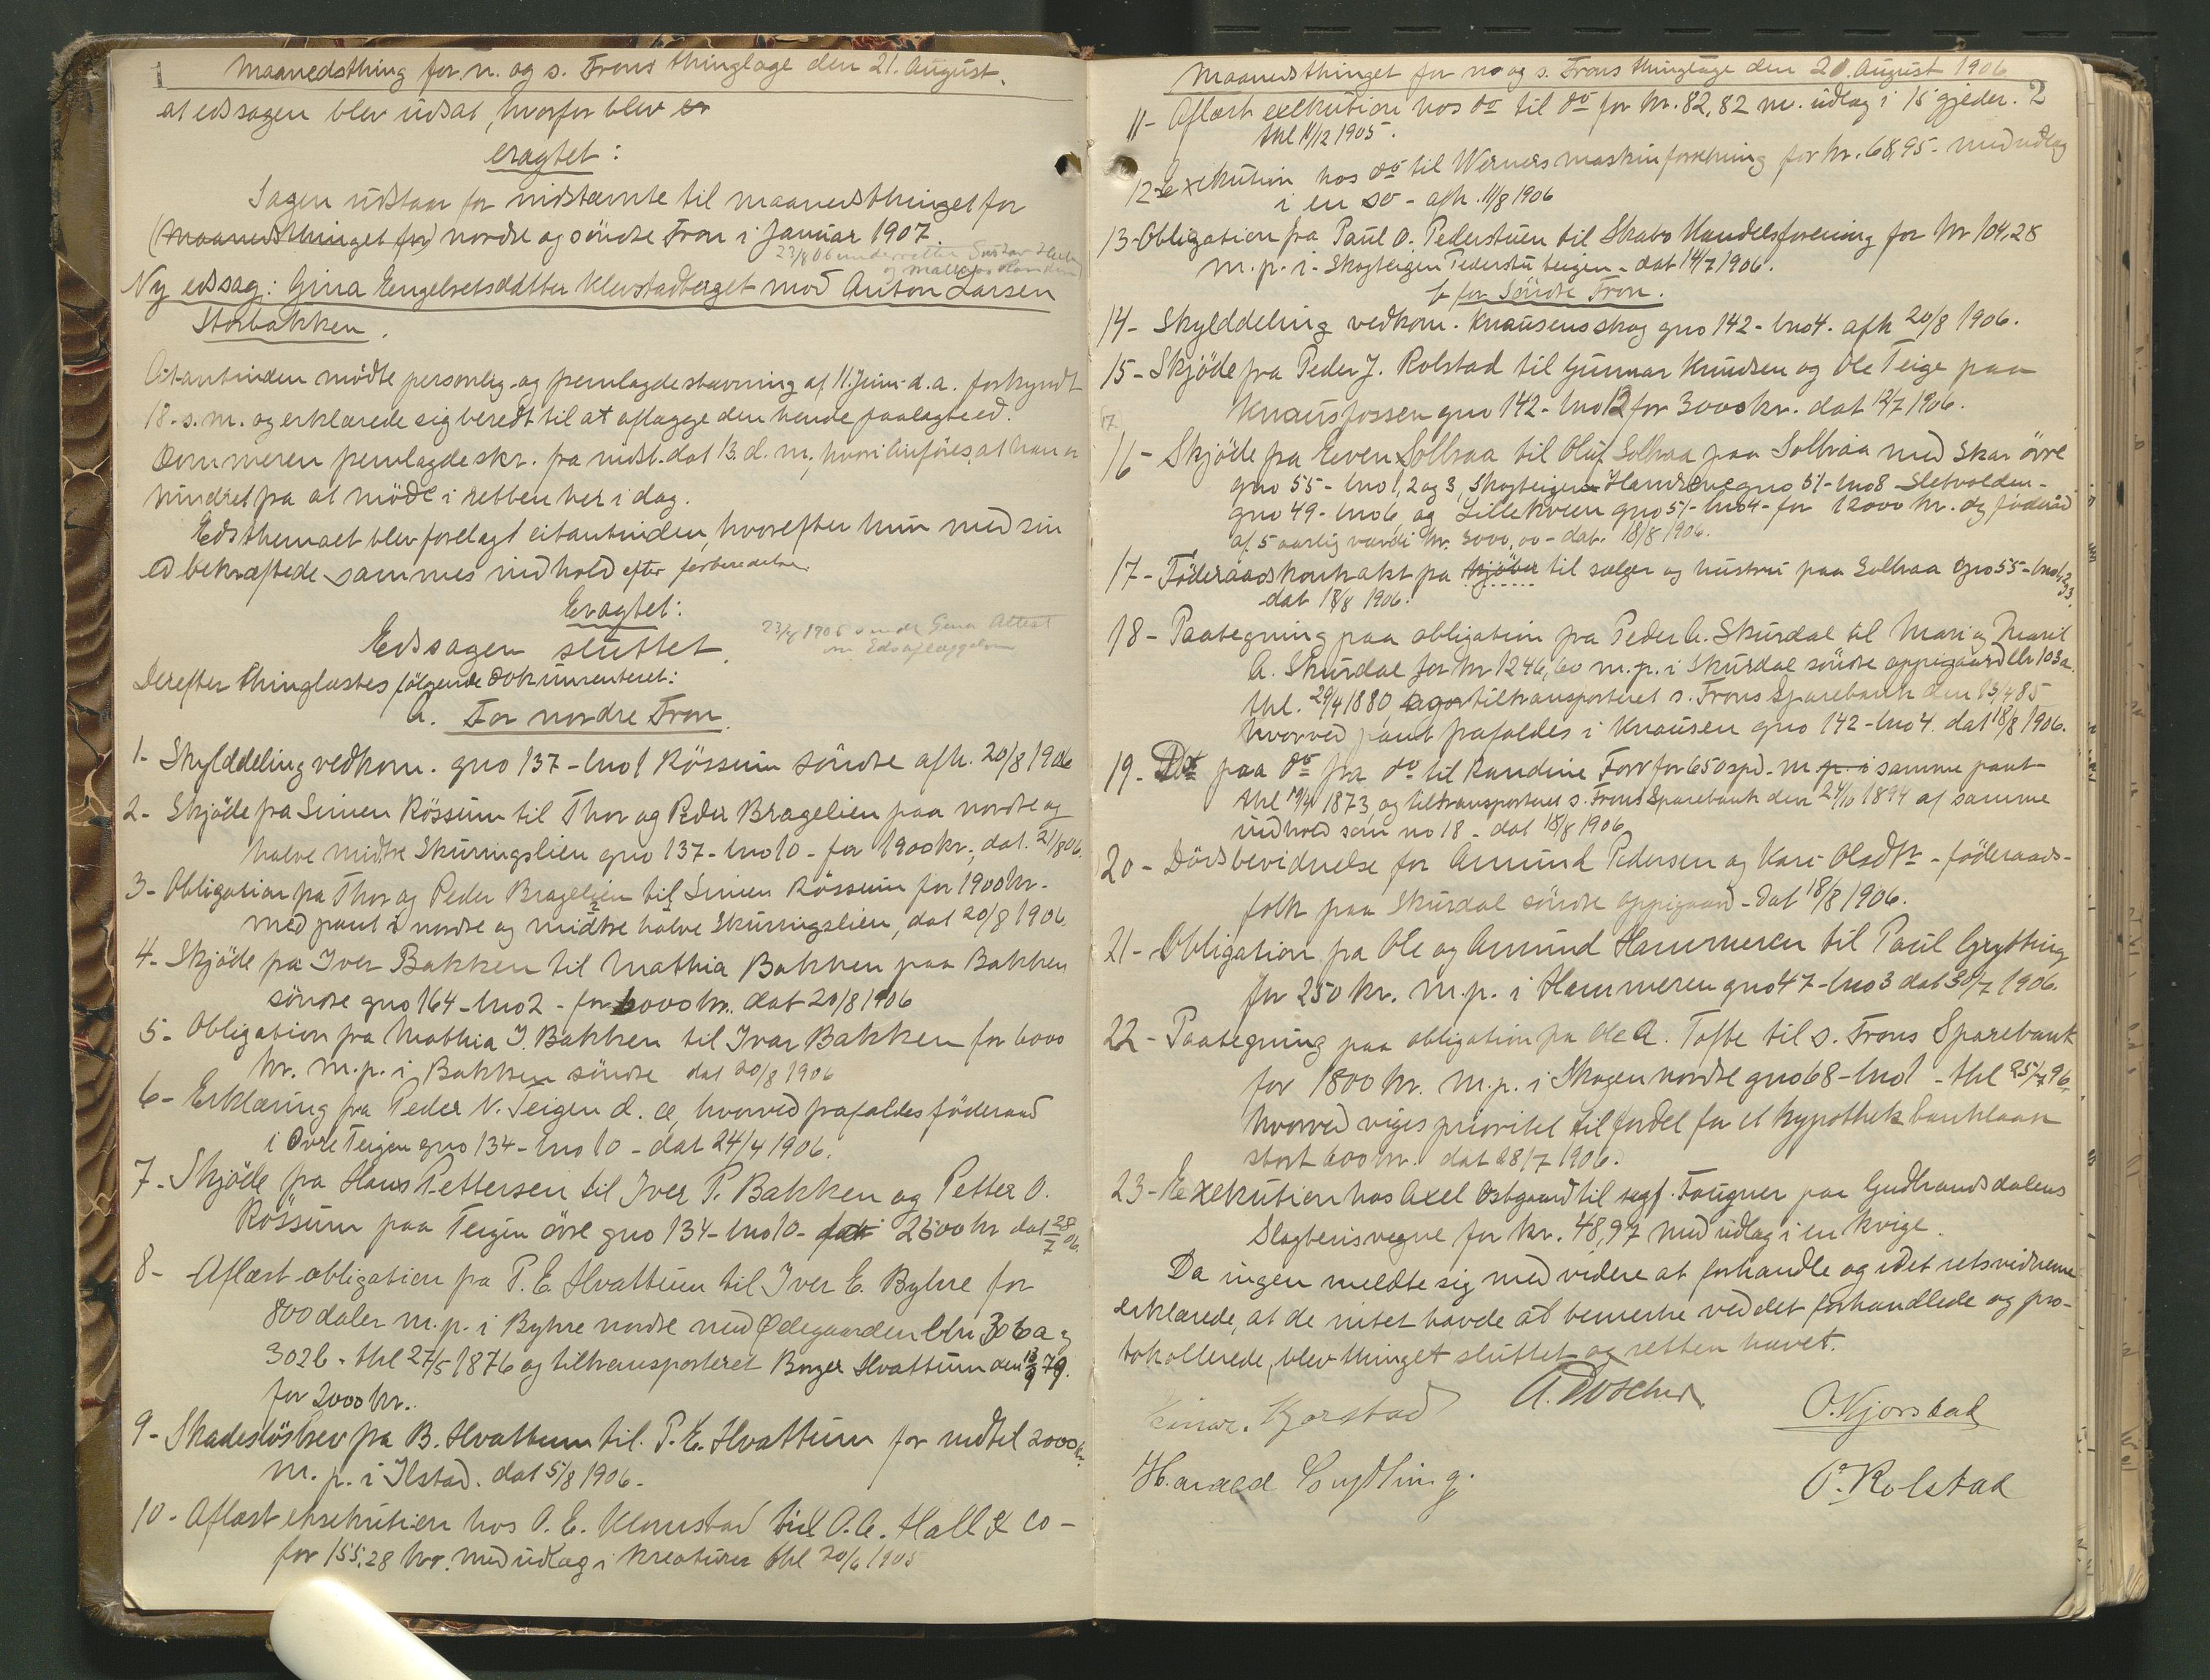 1
Maanedsthing for n. og s. Frons thinglage den 21. August.
at edssagen blev udsat, hvorfor blev
eragtet:
Sagen udstaar for indstævnte til maanedsthinget for
(Maanedsthinget for) nordre og söndre Fron i Januar 1907.
23/8 06 underrettet Gustav
og Mathias
Ny edssag: Gina Engelretsdatter Klevstadberget mod Anton Larsen
Storbakken.
Citantinden mödte personlig og fremlagde stævning af 11. Juni d.a. forkyndt
18. s.m. og erklærede sig beredt til at aflægge den hende paalagte ed.
Dommeren fremlagde skr. fra indst. dat 13. d.m., hvori anföres, at han er
hindret fra at möde i retten her i dag.
Edsthemaet blev forelagt citantinden, hvorefter hun med sin
ed bekræftede sammes indhold efter forberedelse.
Eragtet:
Edssagen sluttet.
23/8 1906 sendt Gina Attest
om Edsaflæggelsen
Derefter thinglæstes fölgende dokumenteret:
a. For nordre Fron.
1- Skylddeling vedkom. gno 137 - bno 1 Rössum söndre afh. 20/8 1906
2- Skjöde fra Simen Rössum til Thor og Peder Bragelien paa nordre og
halve midtre Skuringslien gno 137 - bno 10 - for 1900 kr., dat. 21/8 06.
3- Obligation fra Thor og Peder Bragelien til Simen Rössum for 1900 kr.
med pant i nordre og midtre halve Skuringslien, dat 20/8 1906.
4- Skjöde fra Iver Bakken til Mathia Bakken paa Bakken
söndre gno 164 - bno 2 - for 6000 kr. dat 20/8 1906
5- Obligation fra Mathia I. Bakken til Ivar Bakken for 6000
kr. m.p. i Bakken söndre dat 20/8 1906
6- Erklæring fra Peder N. Teigen d. æ, hvorved frafaldes föderaad
i Övre Teigen gno 134 - bno 10 - dat 24/4 1906.
7- Skjöde fra Hans Pettersen til Iver P. Bakken og Petter O.
Rössum paa Teigen övre gno 134 - bno 10 - for 2500 kr dat 28/7 06.
8- Aflæst obligation fra P. E. Hvattum til Iver E. Byhre for
800 daler m.p. i Byhre nordre med Ödegaarden lbn 306a og
302b - thl 27/5 1876 og tiltransporteret Borger Hvattum den 13/9 79.
for 2000 kr.
9- Skadeslösbrev fra B. Hvattum til P. E. Hvattum for indtil 2000 kr.
m.p. i Ilstad. dat 5/8 1906.
10- Aflæst eksekution hos O. E. Klomstad til O. A. Hall & Co -
for 155,28 kr. med udlæg i kreaturer thl 20/6 1905
Maanedsthinget for n. og s. Frons thinglage den 21. August 1906
2
11- Aflæst exekution hos do til do for kr. 82,82 m. udlæg i 15 gjeder.
thl 11/12 1905.
12- exekution hos do til Werners maskinforretning for kr. 68,95 - med udlæg
i en so - afh. 11/8 1906
13- Obligation fra Paul O. Pederstuen til Skabo Handelsforening for kr 104,28
m.p. i - Skogteigen Pederstuteigen - dat 14/7 1906.
b for Söndre Fron.
14- Skylddeling vedkom. Knausens skog gno 142 - bno 4. afh 20/8 1906.
15- Skjöde fra Peder J. Rolstad til Gunnar Knudsen og Ole Teige paa
Knausfossen gno 142 - bno 12 for 3000 kr. dat 12/7 1906.
16- Skjöde fra Even Solbraa til Oluf Solbraa paa Solbraa med Skar övre
gno 55 - bno 1, 2 og 3, Skogteigen gno 51 - bno 8 Sletvolden -
gno 49 - bno 6, og Lillekven gno 51 - bno 4 - for 12000 kr. og föderåd
af 5 aarlig værdi kr. 3000,00 - dat. 18/8 1906.
17- Föderaadskontrakt fra kjöber til sælger og hustru paa Solbraa gno 55 - bno 1, 2, 3.
dat 18/8 1906.
18- Paategning paa obligation fra Peder A. Skurdal til Mari og Marit
A. Skurdal for kr 1246,60 m.p. i Skurdal söndre oppigaard lbr 103a
thl. 29/4 1880, tiltransporteret s. Frons Sparebank den 13/4 85
hvorved pant frafaldes i Knausen gno 142 - bno 4. dat 18/8 1906.
19- Do paa do fra do til Randine Forr for 650 spd. m.p. i samme pant
thl 19/4 1873, og tiltransporteret s. Frons Sparebank den 24/10 1894 af samme
indhold som no 18 - dat 18/8 1906
20- Dödsbevidnelse for Amund Pedersen og Kari Olsdtr - föderaads-
folk paa Skurdal söndre oppigaard - dat 18/8 1906.
21- Obligation fra Ole og Amund Hammeren til Paul Grytting
for 250 kr. m.p. i Hammeren gno 47 - bno 3 dat 30/7 1906.
22- Paategning paa obligation fra Ole A. Tofte til s. Frons Sparebank
for 1800 kr. m.p. i Skogen nordre gno 68 - bno 1 - thl 25/7 96,
hvorved viges prioritet til fordel for et hypothekbanklaan
stort 600 kr. dat 28/7 1906.
23- Exekution hos Axel Ostgaard til sagf. Fougner paa Gudbrandsdalens
Slagteris vegne for kr. 48,97 med udlæg i en kvige.
Da ingen meldte sig med videre at forhandle og idet retsvidnerne
erklærede, at de intet havde at bemerke ved det forhandlede og pro-
tokollerede, blev thinget sluttet og retten hævet.
Einar Kjorstad
O. Kjorstad
Harald Grytting.
P. Rolstad